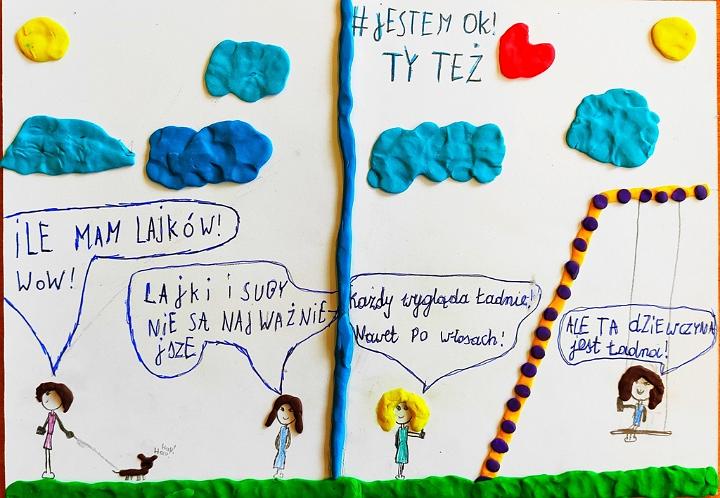 #JESTEM OK!
TY TEŻ
ILE MAM LAJKÓW!
WOW!
LAJKI I SUBY
NIE SĄ NAJWAŻNIE
JSZE
Każdy wygląda ładnie!
Nawet po włosach!
ALE TA dZIEWCZYNA
jest ładna!
Hau!